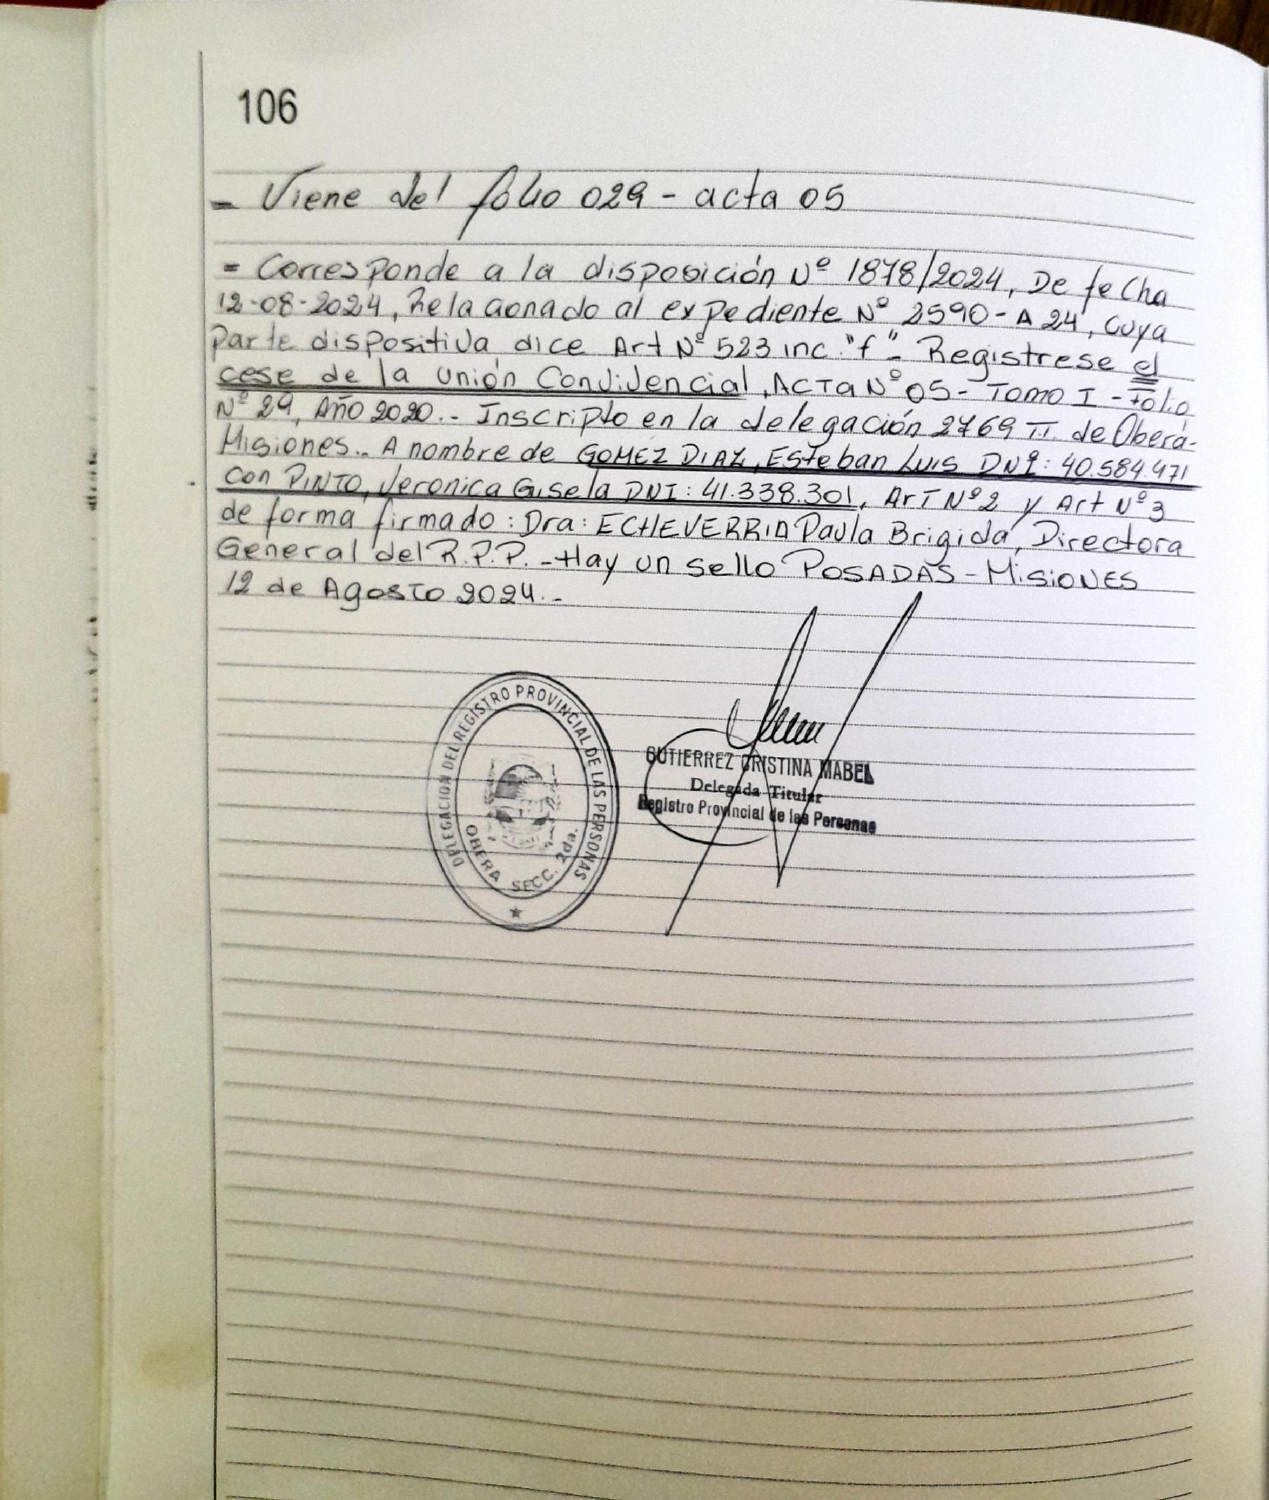 106
- Viene del folio 029 - acta 05
= Corresponde a la disposición Nº 1878/2024, De fecha
12-08-2024, Relacionado al expediente Nº 2590-A 24, cuya
Parte dispositiva dice Art Nº 523 inc. "f" - Registrese el
cese de la Unión Convivencial, ACTA Nº 05 - Tomo I - folio
Nº 29, Año 2020.- Inscripto en la delegación 2769 II de Oberá-
Misiones.. A nombre de GOMEZ DIAZ, Esteban Luis DNI: 40.584.471
con PINTO, Veronica Gisela DNI: 41.338.301, ArT Nº 2 y Art Nº 3
de forma firmado: Dra: ECHEVERRIA Paula Brigida, Directora
General del R.P.P. - Hay un sello POSADAS - MisioNES
12 de AgosTo 2024.-
DELEGACION DEL REGISTRO PROVINCIAL DE LAS PERSONAS
OBERA SECC. 2da.
GUTIERREZ CRISTINA MABEL
Delegada Titular
Registro Provincial de las Personas